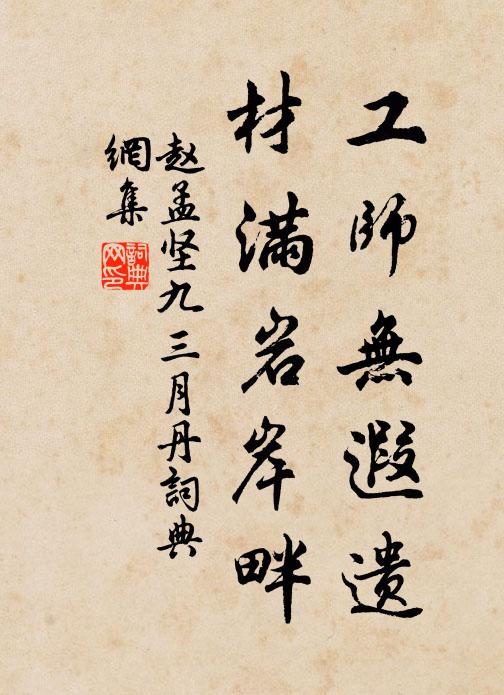 工師無遐遗
材满岩岸畔
赵孟坚九三月丹詞典
網集
詞典網印